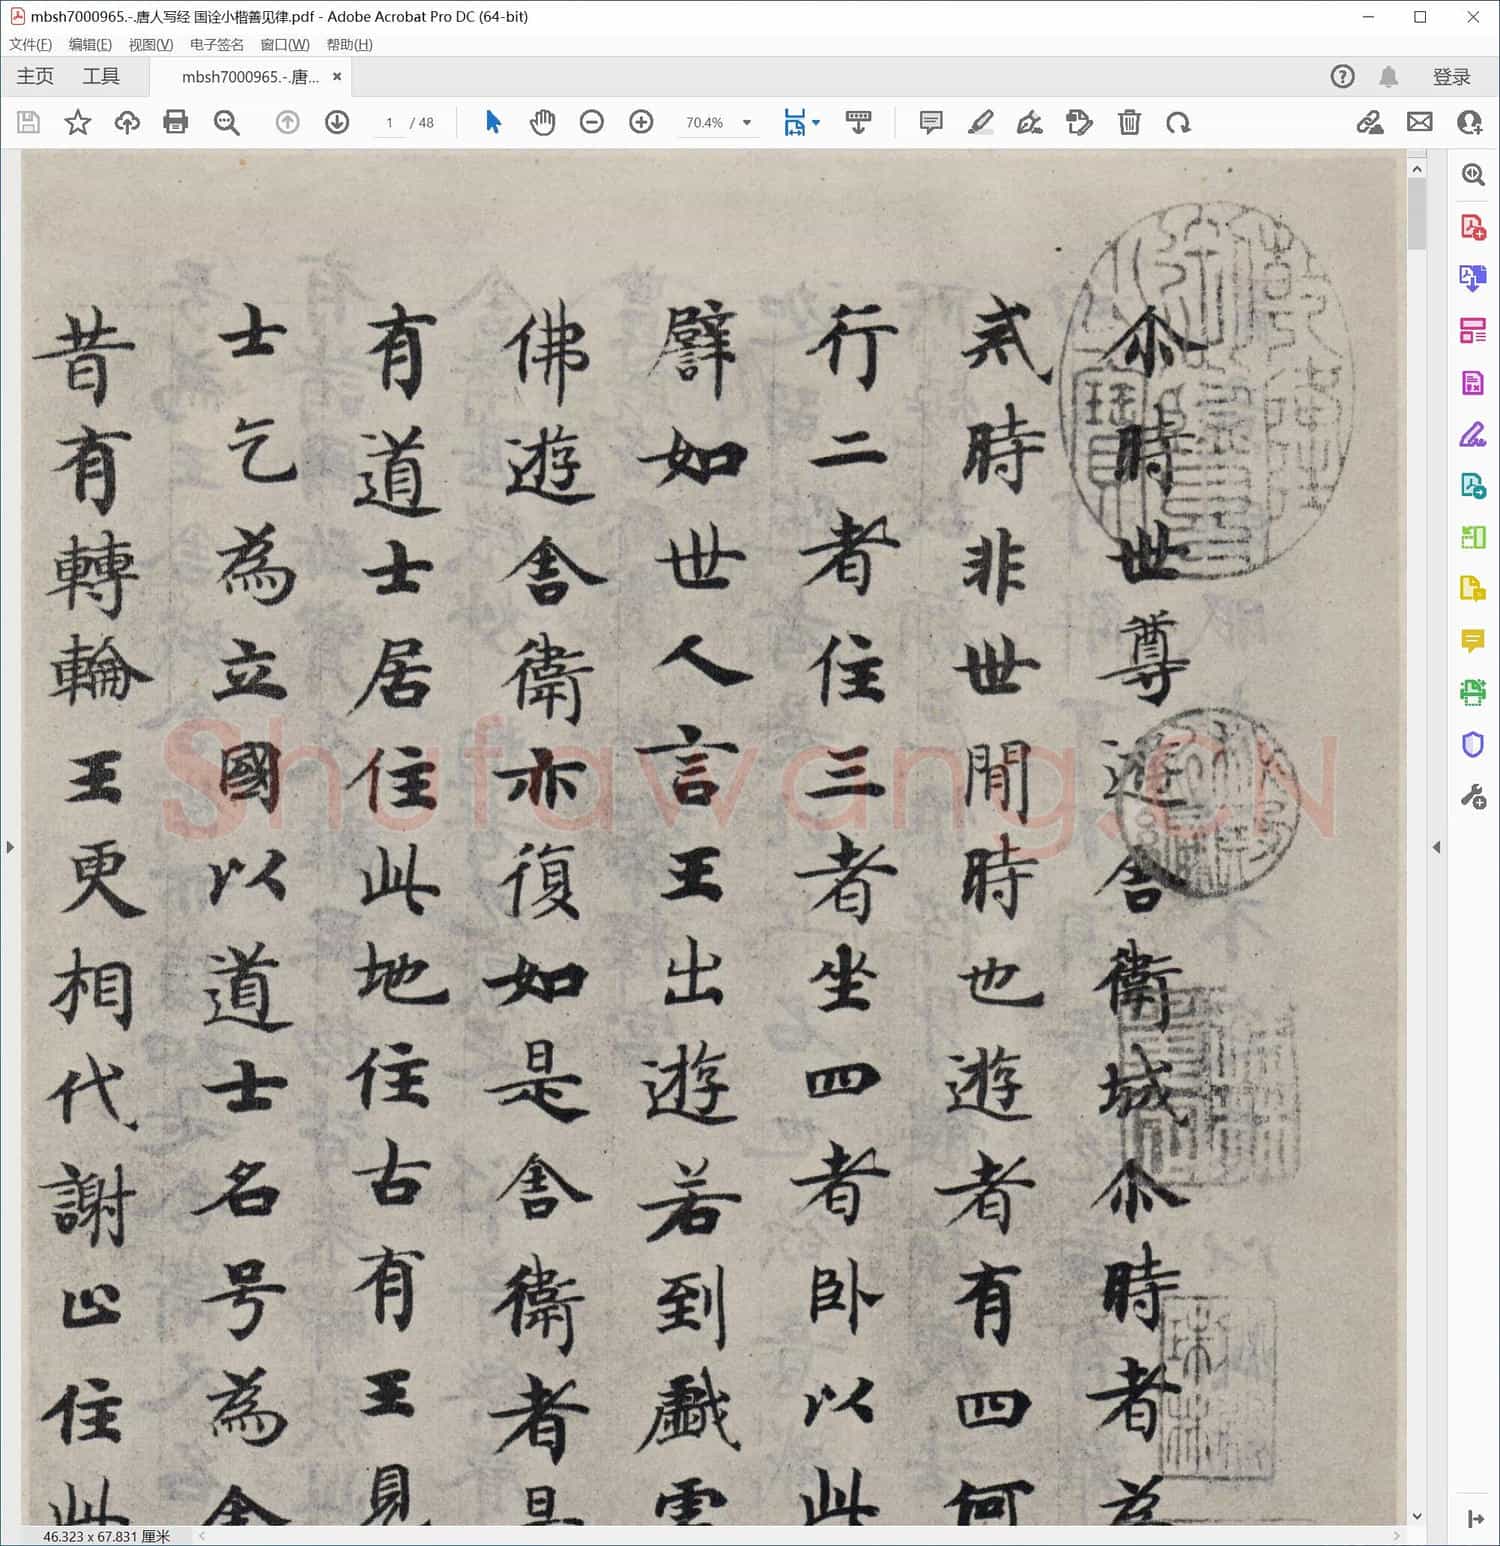 mbsh7000965.-.唐人写经 国诠小楷善见律.pdf - Adobe Acrobat Pro DC (64-bit)
文件(F) 编辑(E) 视图(V) 电子签名 窗口(W) 帮助(H)
主页 工具 mbsh7000965.-.唐... × 登录
1 / 48 70.4%
尒時世尊遊舍衛城尒時者為
貳時非世間時也遊者有四何
行二者住三者坐四者卧以此
譬如世人言王出遊若到戲
佛遊舍衛亦復如是舍衛者是
有道士居住此地住古有王見
士乞為立國以道士名号為舍
昔有轉輪王更相代謝止住此
Shufawang.CN
46.323 x 67.831 厘米